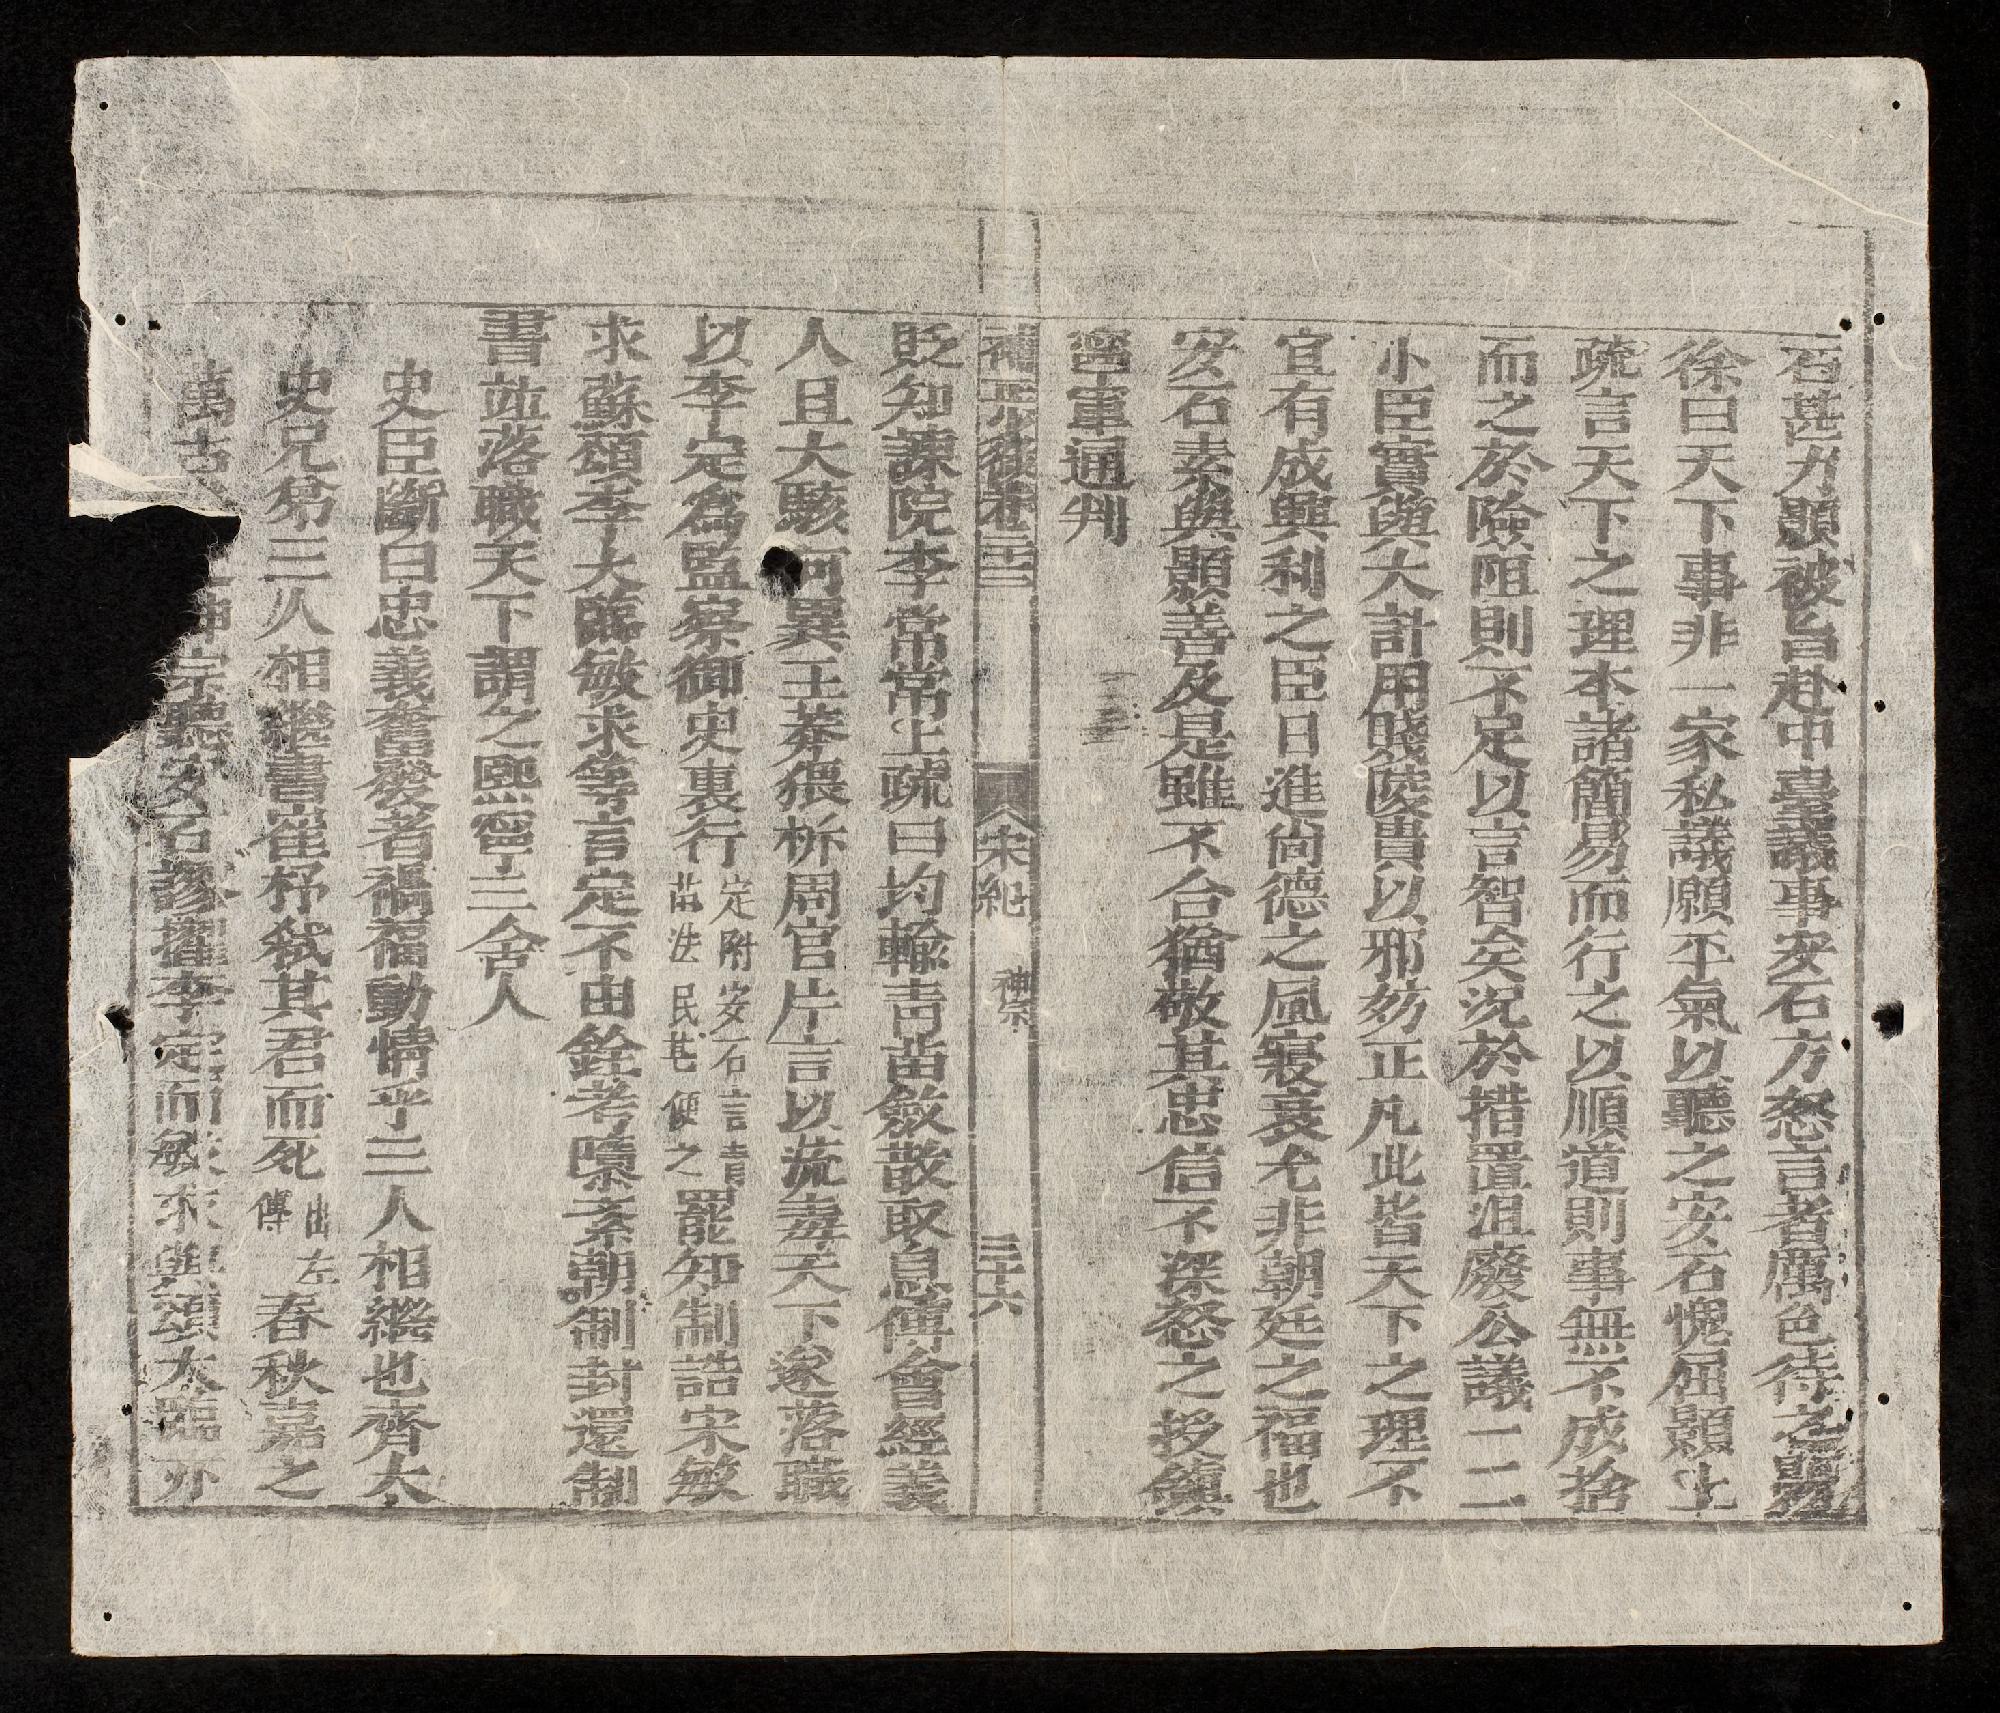 石甚力顥被旨赴中臺議事安石方怒言者厲色待之顥
徐曰天下事非一家私議願平氣以聽之安石愧屈顥上
疏言天下之理本諸簡易而行之以順道則事無不成捨
而之於險阻則不足以言智矣況於措置沮廢公議一二
小臣實與大計用賤陵貴以邪妨正凡此皆天下之理不
宜有成興利之臣日進尚德之風寖衰尤非朝廷之福也
安石素與顥善及是雖不合猶敬其忠信不深怒之授鎮
寧軍通判
補正少微卷三十三 宋紀 神宗 三十六
貶知諫院李常常上疏曰均輸青苗斂散取息傅會經義
人且大駭何異王莽猥析周官片言以流毒天下遂落職
以李定為監察御史裏行
定附安石言青
苗法民甚便之
罷知制誥宋敏
求蘇頌李大臨敏求等言定不由銓考隳紊朝制封還制
書並落職天下謂之熙寧三舍人
史臣斷曰忠義奮發者禍福動情乎三人相繼也齊太
史兄弟三人相繼書崔杼弒其君而死
出左
傳
春秋嘉之
萬古 神宗聽安石謬擢李定而敏求與頌大臨亦